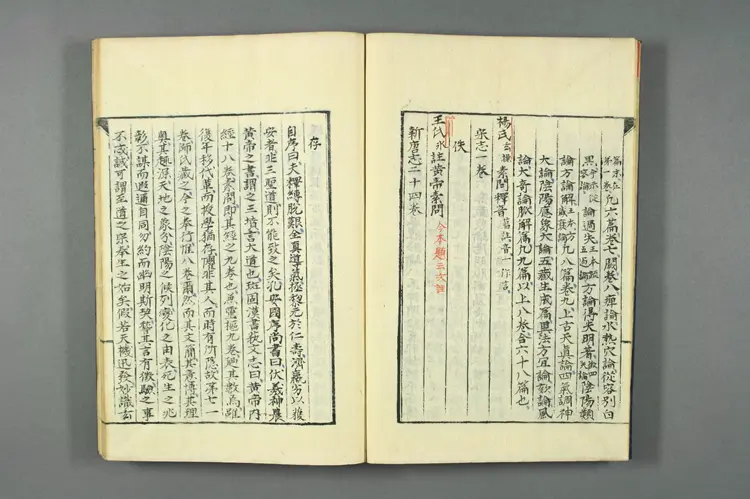 凡六篇卷七闕卷八痺論水熱穴論從容別白
黑論過失方論得失明著陰陽類
論方論解凡八篇卷九上古天真論四氣調神
大論陰陽應象大論五藏生成篇異法方宜論欬論風
論大奇論脈解篇凡九篇以上八卷合六十八篇也
楊氏玄操素問釋音
宋志一卷
佚
王氏氷註黃帝素問 今本題云次註
新唐志二十四卷
存
自序曰夫釋縛脫艱全真導氣拯黎元於仁壽濟羸劣以獲
安者非三聖道則不能致之矣孔安國序尚書曰伏羲神農
黃帝之書謂之三墳言大道也班固漢書藝文志曰黃帝內
經十八卷素問即其經之九卷也兼靈樞九卷廼其數焉雖
復年移代革而授學猶存懼非其人而時有所隱故第七一
卷師氏藏之今之奉行惟八卷爾然而其文簡其意博其理
奧其趣深天地之象分陰陽之候列變化之由表死生之兆
彰不謀而遐邇自同勿約而幽明斯契稽其言有徵驗之事
不忒誠可謂至道之宗奉生之始矣假若天機迅發妙識玄